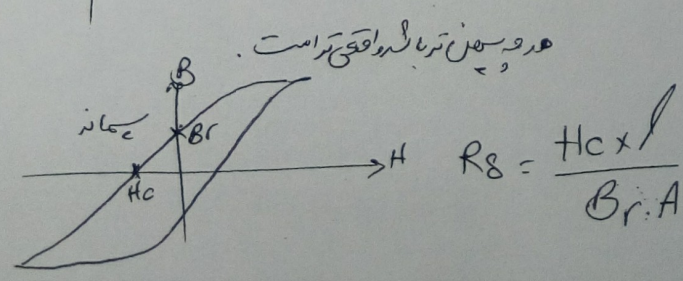 هر چه پهن تر باشد واقعی تر است.
B
پسماند
Br
H
Hc
Rδ = Hc × l / Br . A